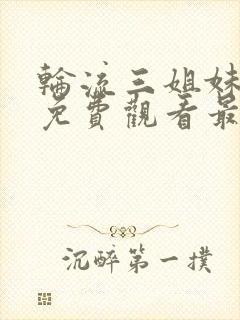 輪流三姐妹
免費觀看最
沉醉第一撲